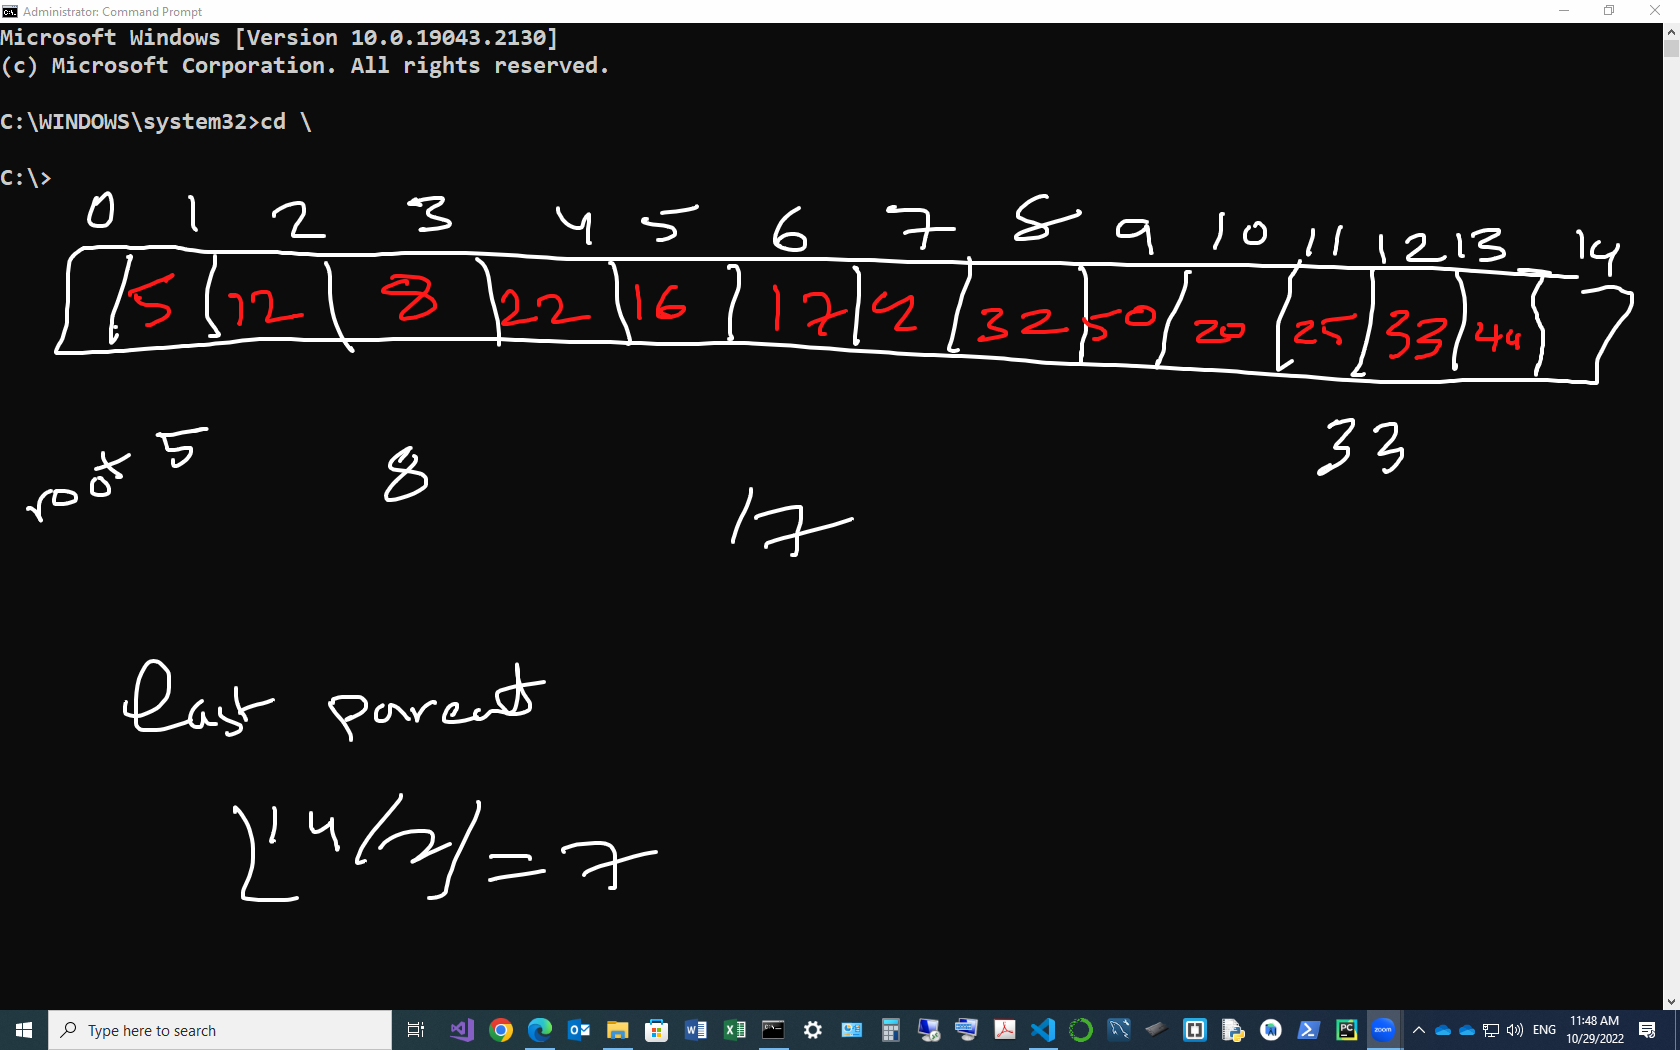 Administrator: Command Prompt
Microsoft Windows [Version 10.0.19043.2130]
(c) Microsoft Corporation. All rights reserved.
C:\WINDOWS\system32>cd \
C:\>
0 1 2 3 4 5 6 7 8 9 10 11 12 13 14
5 12 8 22 16 17 9 32 50 20 25 33 44
root 5 8 17 33
last parent
⌊14/2⌋ = 7
Type here to search
ENG
11:48 AM
10/29/2022